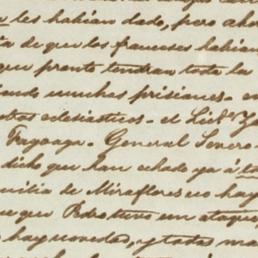 les habian dado, pero aho
ta de que los franceses habian
que pronto tendran toda la
endo muchas prisiones. en
otros eclesiasticos. el Licdo. Za
Fagoaga. General Senero
dicho que han echado ya á
quitia de Miraflores no hay
que Pdro tuvo un ataque,
hay novedad, y toda ma